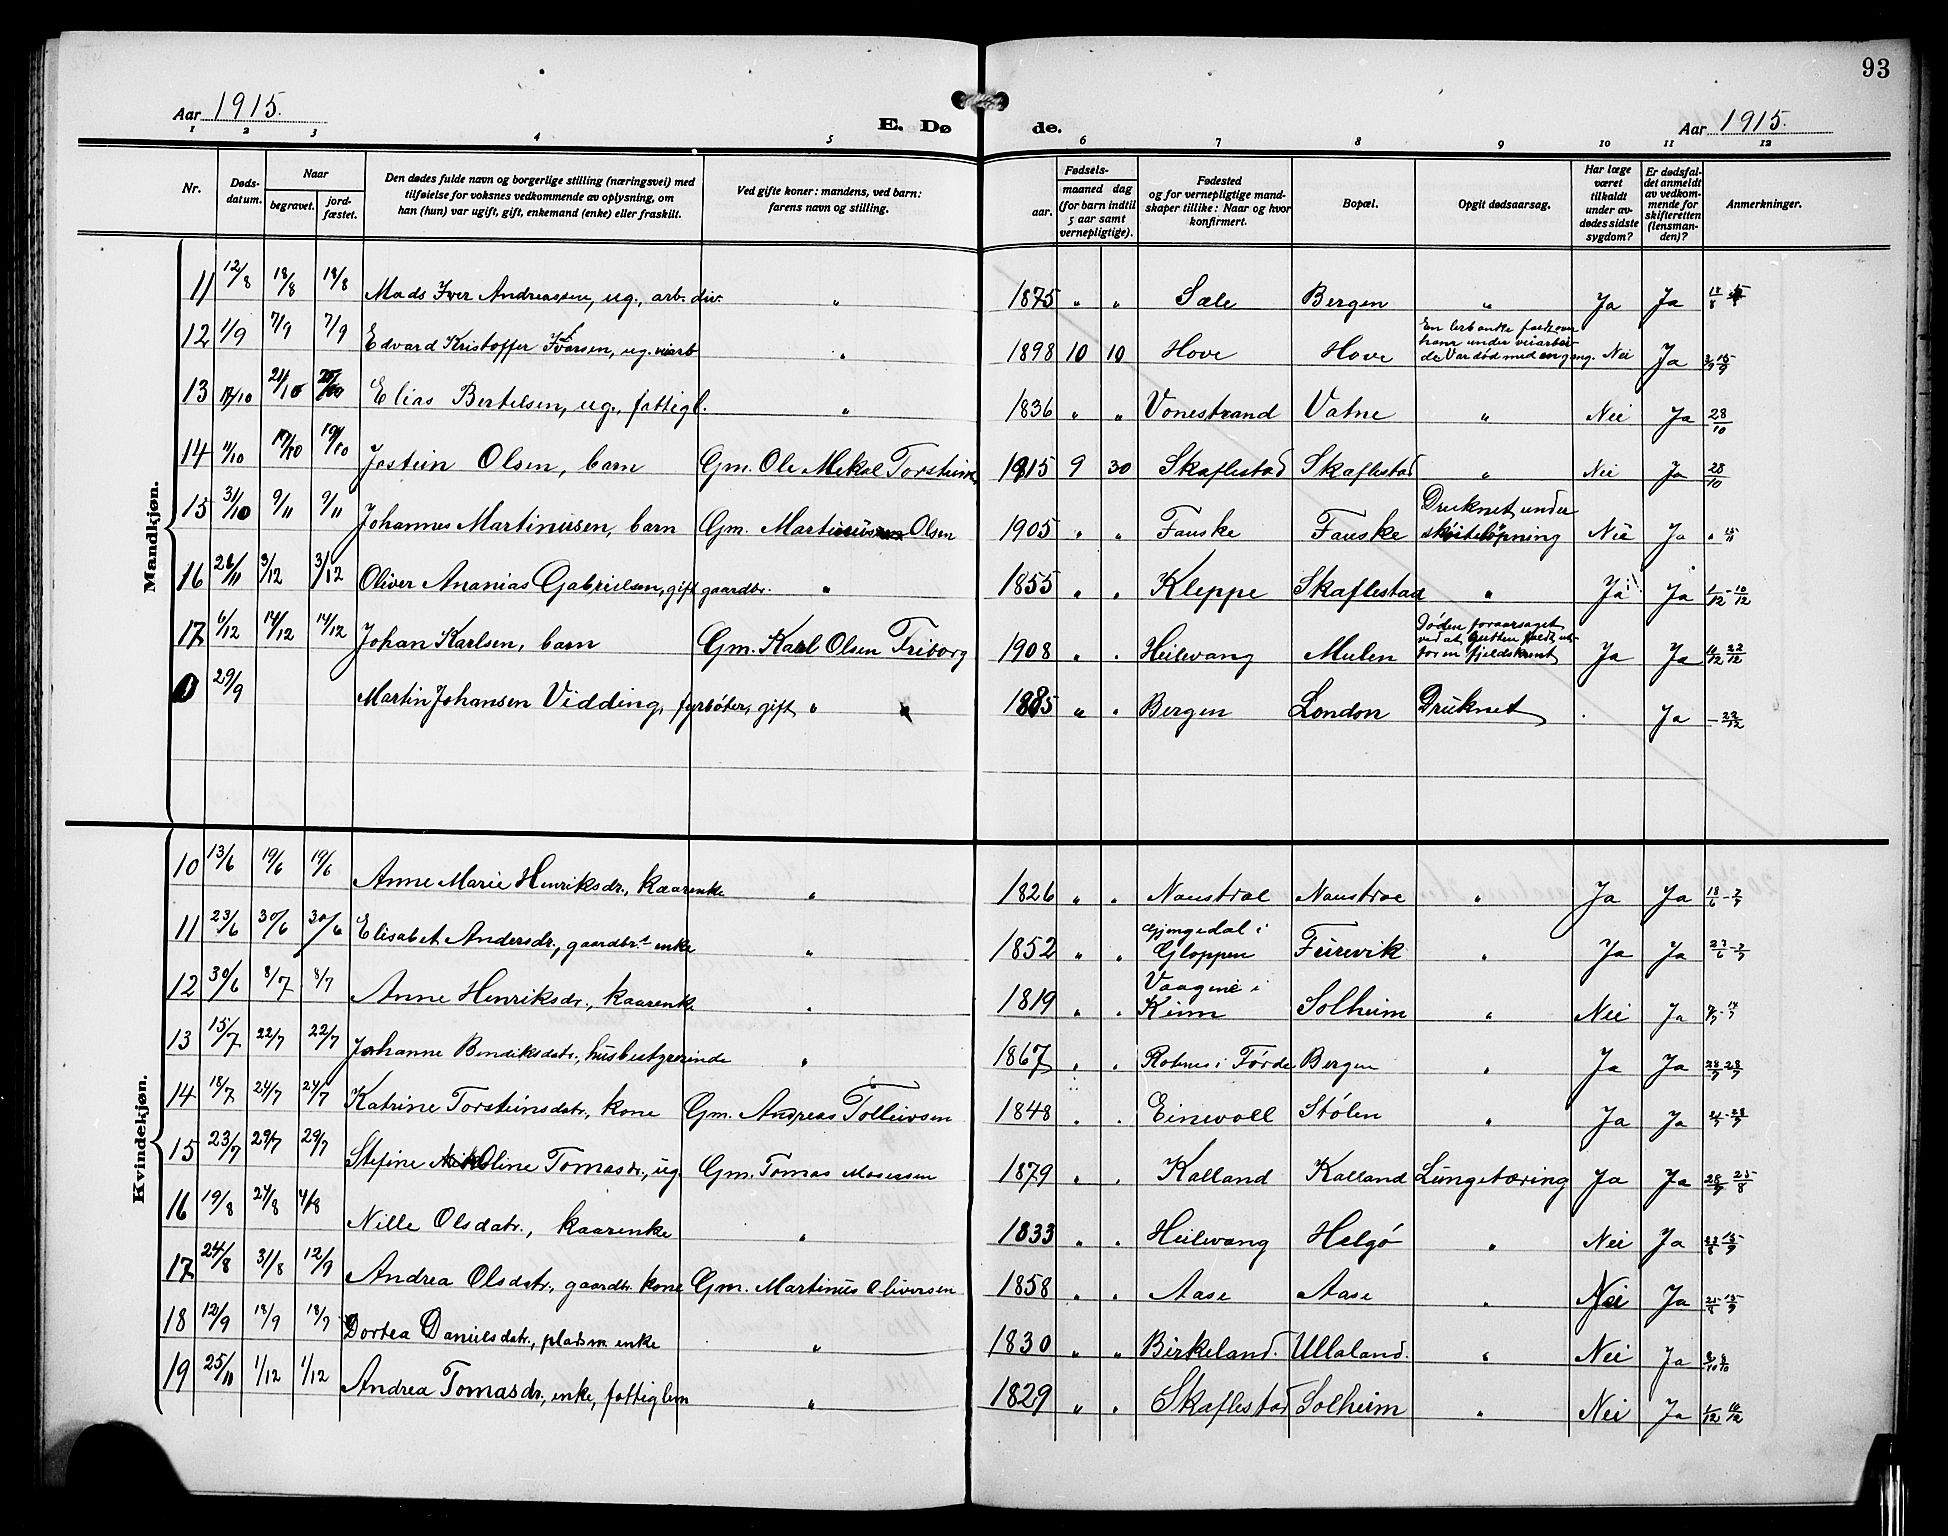 93
Aar 1915.
E. Døde.
Aar 1915.
1 2 3 4 5 6 7 8 9 10 11 12
Nr.
Dødsdatum.
Naar
begravet.
jordfæstet.
Den dødes fulde navn og borgerlige stilling (næringsvei) med
tilføielse for voksnes vedkommende av oplysning, om
han (hun) var ugift, gift, enkemand (enke) eller fraskilt.
Ved gifte koner: mandens, ved barn:
farens navn og stilling.
Fødsels-
aar.
maaned dag
(for barn indtil
5 aar samt
vernepligtige).
Fødested
og for vernepligtige mand-
skaper tillike: Naar og hvor
konfirmert.
Bopæl.
Opgit dødsaarsag.
Har læge
været
tilkaldt
under av-
dødes sidste
sygdom?
Er dødsfal-
det anmeldt
av vedkom-
mende for
skifteretten
(lensman-
den)?
Anmerkninger.
Mandkjøn.
11 12/8 18/8 18/8 Mads Iver Andreassen, ug., arb. div. " 1875 " " Sæle Bergen " Ja Ja 18/8
12 1/9 7/9 7/9 Edvard Kristoffer Ivarsen, ug. veiarb " 1898 10 10 Hove Hove En lerbanke faldt over hans under veiarbeide Var død med en gang. Nei Ja
13 21/10 Elias Bertelsen, ug., fattigl. " 1836 " " Vonestrand Vatne " Nei Ja 28/10
14 11/10 17/10 19/10 Jostein Olsen, barn Gm. Ole Mikal Torsteins. 1915 9 30 Skaflestad Skaflestad " Nei Ja 28/10
15 31/10 9/11 9/11 Johannes Martinusen, barn Gm. Martinus Olsen 1905 " " Fauske Fauske Druknet under skøiteløpning Nei Ja " 15/11
16 26/11 3/12 3/12 Oliver Ananias Gabrielsen, gift gaardbr. " 1855 " " Kleppe Skaflestad " Ja Ja 1/12 - 10/12
17 6/12 14/12 14/12 Johan Karlsen, barn Gm. Karl Olsen Friborg 1908 " " Heilevang Mulen Døden foraarsaget ved at gutten faldt utfor en fjeldskrent Ja Ja 11/12 22/12
0 29/9 Martin Johansen Vidding, fyrbøter, gift " 1885 " " Bergen London Druknet . Ja - 22/12
Kvindekjøn.
10 13/6 19/6 19/6 Anne Marie Henriksdr., kaarenke " 1826 " " Naustdal Naustdal " Ja Ja 18/6 - 2/7
11 23/6 30/6 30/6 Elisabet Andersdr., gaardbr. enke " 1852 " " Gjengedal i Gloppen Furevik " Ja Ja 27/6 - 2/7
12 30/6 8/7 8/7 Anne Henriksdr., kaarenke " 1819 " " Vaagene i Kinn Solheim " Nei Ja
13 15/7 22/7 22/7 Johanne Bendiksdatr., husbestyrerinde " 1867 " " i Førde Bergen " Ja Ja 28/7 28/7
14 18/7 24/7 24/7 Katrine Torsteinsdatr., kone Gm. Andreas Tolleivsen 1848 " " Einevoll Stølen " Ja Ja
15 23/7 29/7 29/7 Stefine Oline Tomasdr., ug. Gm. Tomas Mosessen 1879 " " Kalland Kalland Lungetæring Ja Ja 28/7 25/8
16 19/8 24/8 Nille Olsdatr., kaarenke " 1833 " " Heilevang Helgø " Nei Ja 22/8 15/9
17 24/8 31/8 12/9 Andrea Olsdatr., gaardbr. kone Gm. Martinus Oliversen 1858 " " Aase Aase " Nei Ja 25/8 15/9
18 12/9 18/9 18/9 Dortea Danielsdatr., pladsm. enke " 1830 " " Birkeland. Ullaland. " Nei Ja 8/10 8/10
19 25/11 1/12 1/12 Andrea Tomasdr., enke, fattiglem " 1829 " " Skaflestad Solheim " Nei Ja 1/12